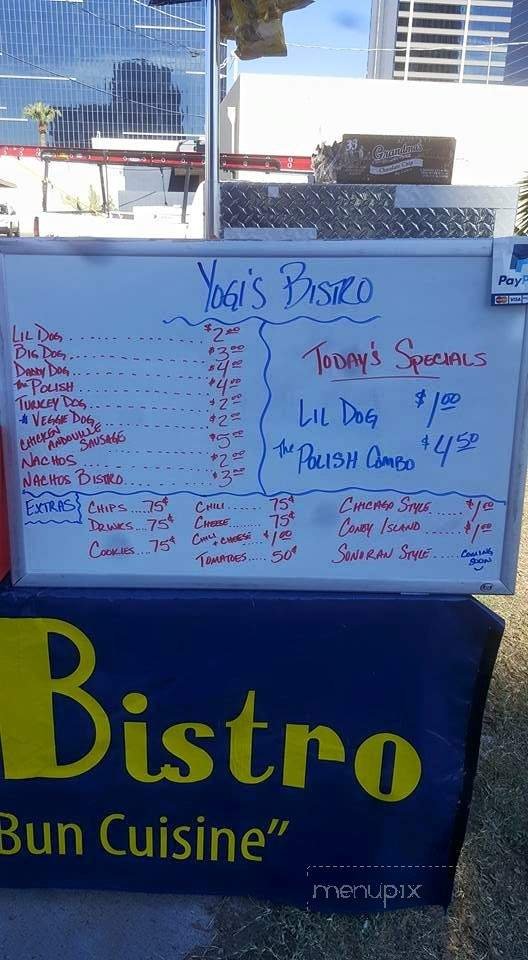 33 Grandma's
Chocolate Chip
PayP
VISA
Yogi's Bistro
Lil Dog .......... $2.00
Big Dog .......... $3.00
Daddy Dog .......... $4.00
The Polish .......... $4.00
Turkey Dog .......... $2.00
* Veggie Dog .......... $2.00
Chicken Andouille Sausage .......... $5.00
Nachos .......... $2.00
Nachos Bistro .......... $3.00
Today's Specials
Lil Dog $1.00
The Polish Combo $4.50
Extras
Chips ... 75¢
Drinks ... 75¢
Cookies .... 75¢
Chili ..... 75¢
Cheese ..... 75¢
Chili + Cheese $1.00
Tomatoes .... 50¢
Chicago Style ..... $1.00
Coney Island ..... $1.00
Sonoran Style ..... Coming Soon
Bistro
Bun Cuisine"
menupix